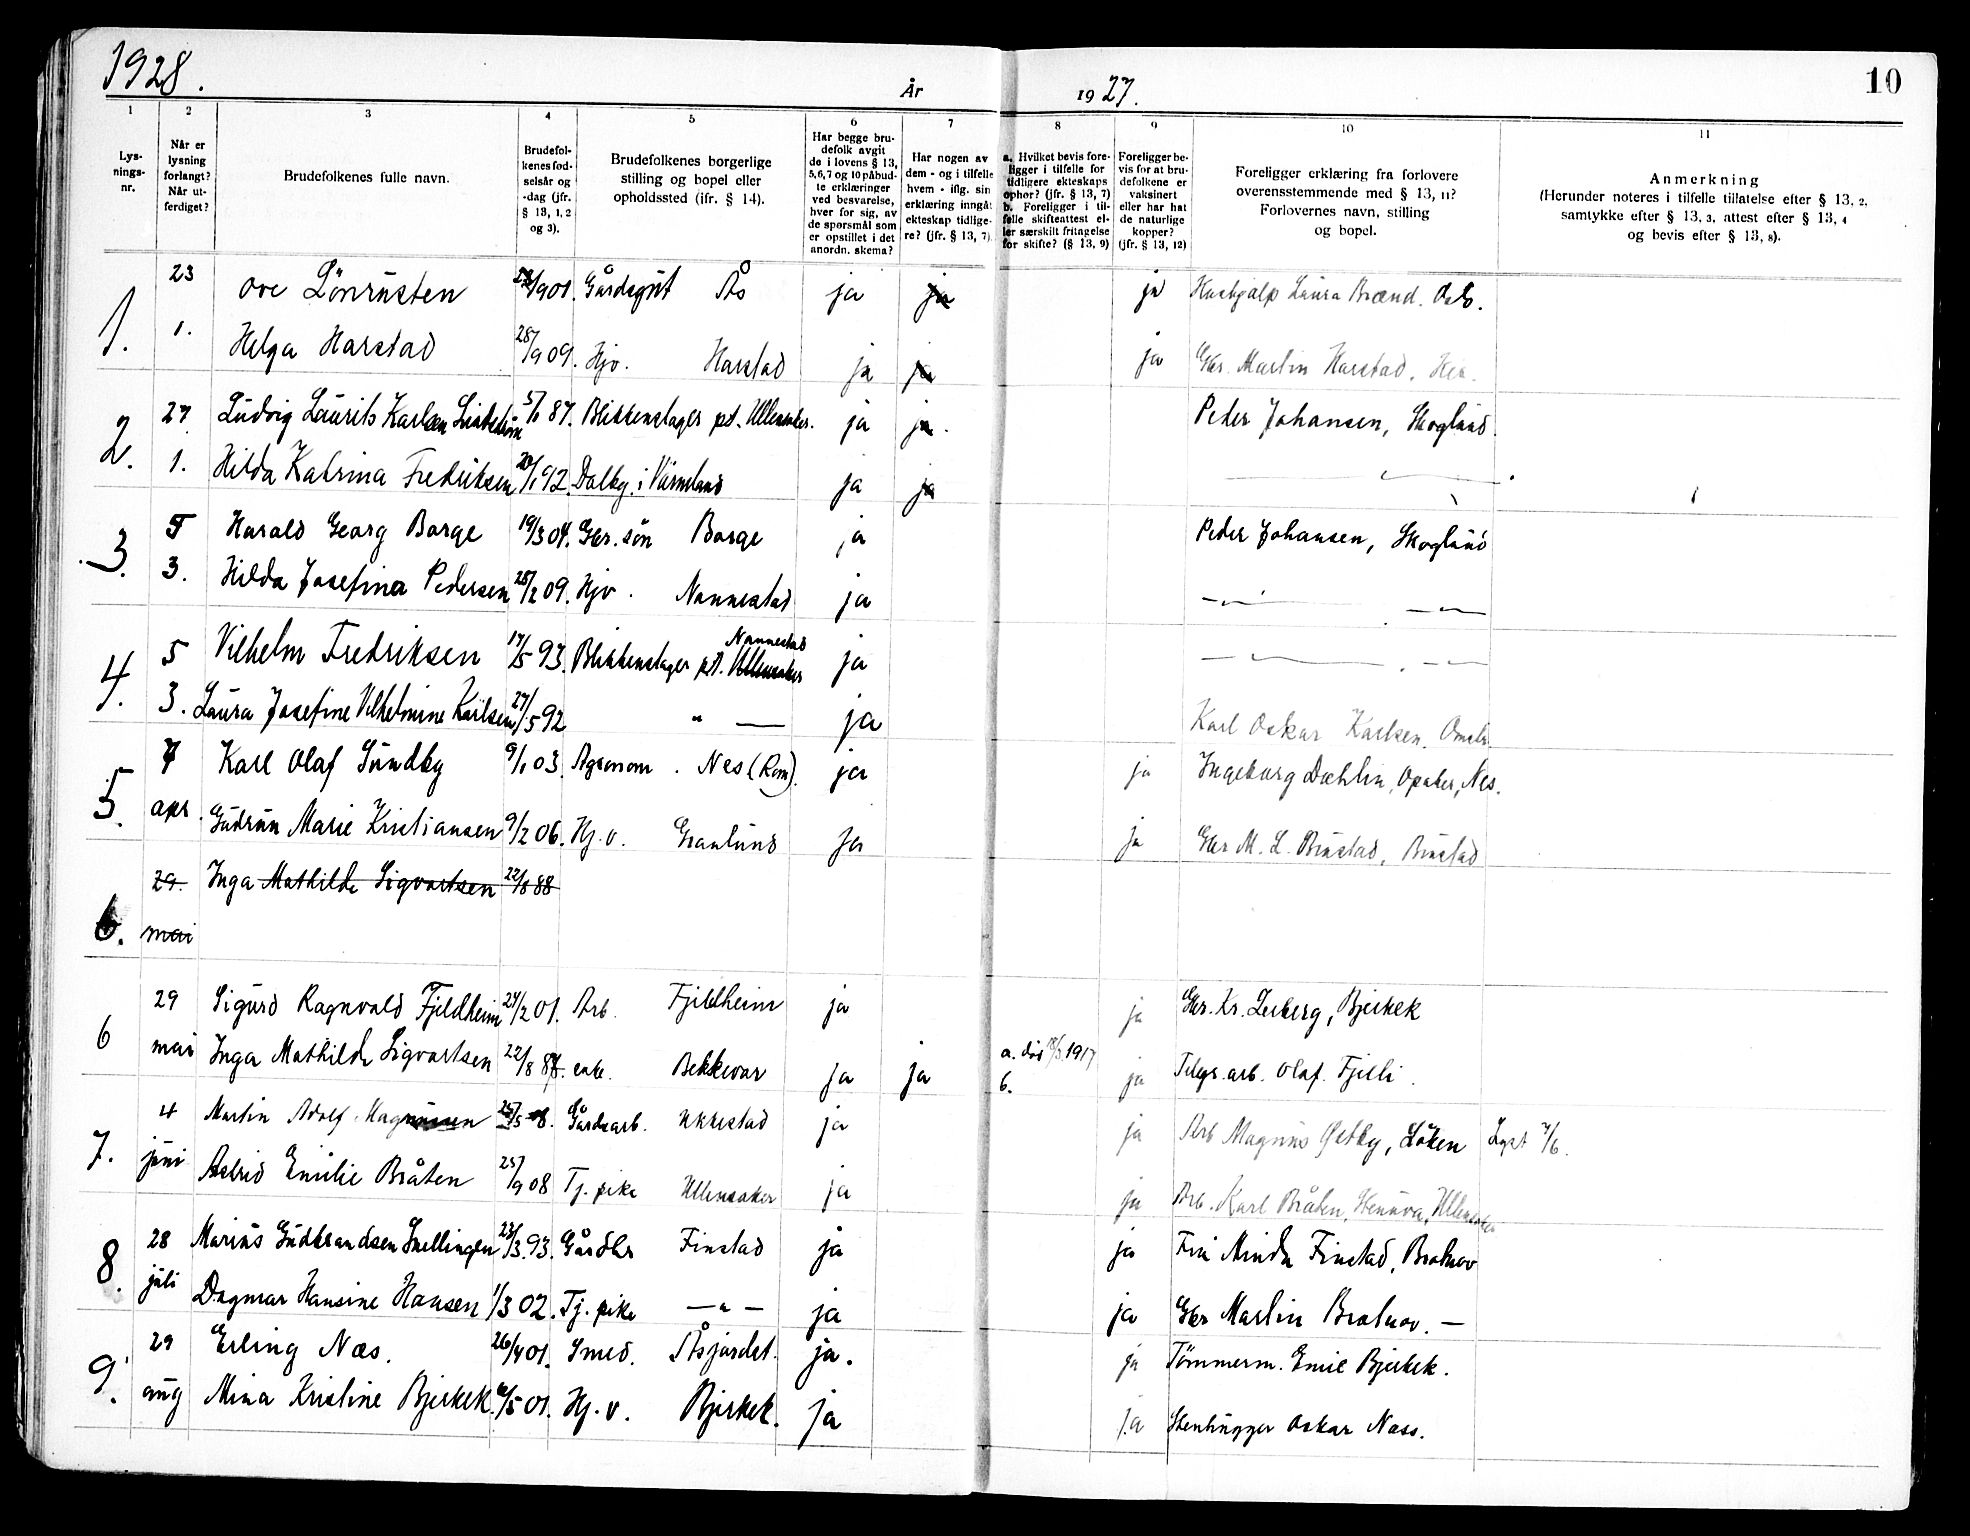 1928.
År 1927.
10
1 2 3 4 5 6 7 8 9 10 11
Lysningsnr.
Når er lysning forlangt? Når utferdiget?
Brudefolkenes fulle navn.
Brudefolkenes fødselsår og -dag (jfr. § 13, 1, 2 og 3).
Brudefolkenes borgerlige stilling og bopel eller opholdssted (ifr. § 14).
Har begge brudefolk avgit de i lovens § 13, 5, 6, 7 og 10 påbudte erklæringer ved besvarelse, hver for sig, av de spørsmål som er opstillet i det anordn. skema?
Har nogen av dem - og i tilfelle hvem - iflg. sin erklæring inngåt ekteskap tidligere? (jfr. § 13, 7)
a. Hvilket bevis foreligger i tilfelle for tidligere ekteskaps ophør? (jfr. § 13, 7)
b. Foreligger i tilfelle skifteattest eller særskilt fritagelse for skifte? (§ 13, 9)
Foreligger bevis for at brudefolkene er vaksinert eller har hat de naturlige kopper? (jfr. § 13, 12)
Foreligger erklæring fra forlovere overensstemmende med § 13, 11? Forlovernes navn, stilling og bopel.
Anmerkning
(Herunder noteres i tilfelle tillatelse efter § 13, 2, samtykke efter § 13, 3, attest efter § 13, 4 og bevis efter § 13, 8).
1. 23 Ove Lönrusten /9 01. Gårdsgut Ås ja ja ja Hushjalp Laura Brænd. Oslo.
1. Helga Harstad 28/9 09. Hjv. Harstad ja ja ja Gbr. Martin Harstad. Her.
2. 27 Ludvig Laurits Karlsen 5/1 87. Blikkenslager pt. Ullensaker. ja ja. Peder Johansen, Skoglund.
1. Hilda Katrina Fredriksen 20/1 92. Dalby i Värmland ja ja — " —
3. 5 Harald Georg Borge 19/3 04. Gbr. sön Borge ja Peder Johansen, Skoglund
3. Hilda Josefina Pedersen 28/2 09. Hjv. Nannestad ja — " — — " —
4. 5 Vilhelm Fredriksen 17/5 93. Blikkenslager pt. Ullensaker Nannestad ja — " — — " —
3. Laura Josefine Vilhelmine Karlsen 27/5 92 " — ja Karl Oskar Karlsen.
5. 7 Karl Olaf Sundby 9/1 03. Agronom. Nes (Rom). ja ja Ingeborg Dæhlin, Opaker, Nes.
apr. Gudrun Marie Kristiansen 9/2 06. Hj. v. Granlund ja ja Gbr M. L. Bustad, Bustad
6. 29. Inga Mathilde Sigvartsen 22/8 88
mai
6 29 Sigurd Ragnvald Fjeldheim 24/2 01. Arb. Fjeldheim ja ja Gbr. Kr. Leiberg, Bjerkek
mai Inga Mathilde Sigvartsen 22/8 88. enke. Bekkevar ja ja a. död 18/3 1917 b. ja Telegr. arb. Olaf Fjelli.
7. 4 Martin Adolf Magnussen 25/5 08. Gårdsarb. Ukkestad ja ja Arb Magnus Østby, Löken Lyst 7/6.
juni Astrid Emilie Bråten 25/9 08 Tj. pike Ullensaker ja ja Arb. Karl Bråten, Ullensaker
8. 28 Marius Gudbrandsen Snellingen 23/3. 93. Gårdbr Finstad ja ja Fru Minda Finstad,
juli Dagmar Hansine Hansen 1/3 02. Tj. pike — " — ja ja Gbr Martin —
9. 29 Erling Næs. 26/4 01. Smed. Åsjordet. ja. ja Tömmerm. Emil Bjerkek.
aug Mina Kristine Bjerkek. /5 01. Hj. v. Bjerkek. ja ja Stenhugger Oskar Næss.